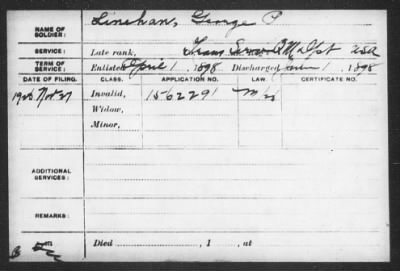 NAME OF SOLDIER: Linehan, George P.
SERVICE: Late rank, Q M Dept USA
TERM OF SERVICE: Enlisted April 1, 1898 Discharged June 1, 1898
DATE OF FILING. CLASS. APPLICATION NO. LAW. CERTIFICATE NO.
Invalid, 1562291
Widow,
Minor,
ADDITIONAL SERVICES:
REMARKS:
Died , 1 , at